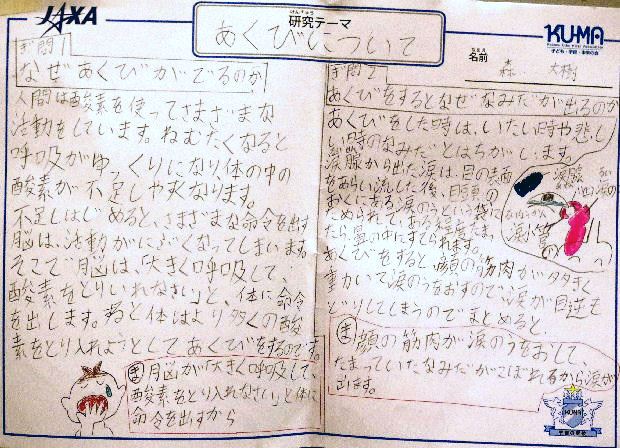 JAXA
けんきゅう
研究テーマ
あくびについて
KUMA
子ども・宇宙・未来の会
なまえ
名前
森 大樹
ぎ問1
なぜあくびがでるのか
人間は酸素を使ってさまざまな
活動をしています。ねむたくなると
呼吸がゆっくりになり体の中の
酸素が不足しやすくなります。
不足しはじめると、さまざまな命令を出す
脳は、活動がにぶくなってしまいます。
そこで脳は、「大きく呼吸して、
酸素をとりいれなさい」と、体に命令
を出します。すると体はより多くの酸
素をとり入れようとしてあくびをするのです。
ま 脳が「大きく呼吸して、
酸素をとり入れなさい」と体に
命令を出すから
ぎ問2
あくびをするとなぜなみだが出るのか
あくびをした時は、いたい時や悲し
い時のなみだとはちがいします。
涙腺から出た涙は、目の表面
をあらい流した後、目頭の
おくにある涙のうという袋に
ためられている程度たま
たら鼻の中にすてられます。
あくびをすると、顔の筋肉が大きく
動いて涙のうをおすので涙が目逆も
どりしてしまうのでまとめると
涙腺
涙小管
ま 顔の筋肉が涙のうをおして、
たまっていたなみだがこぼれてるから涙が
出ます。
KUMA
宇宙の学校